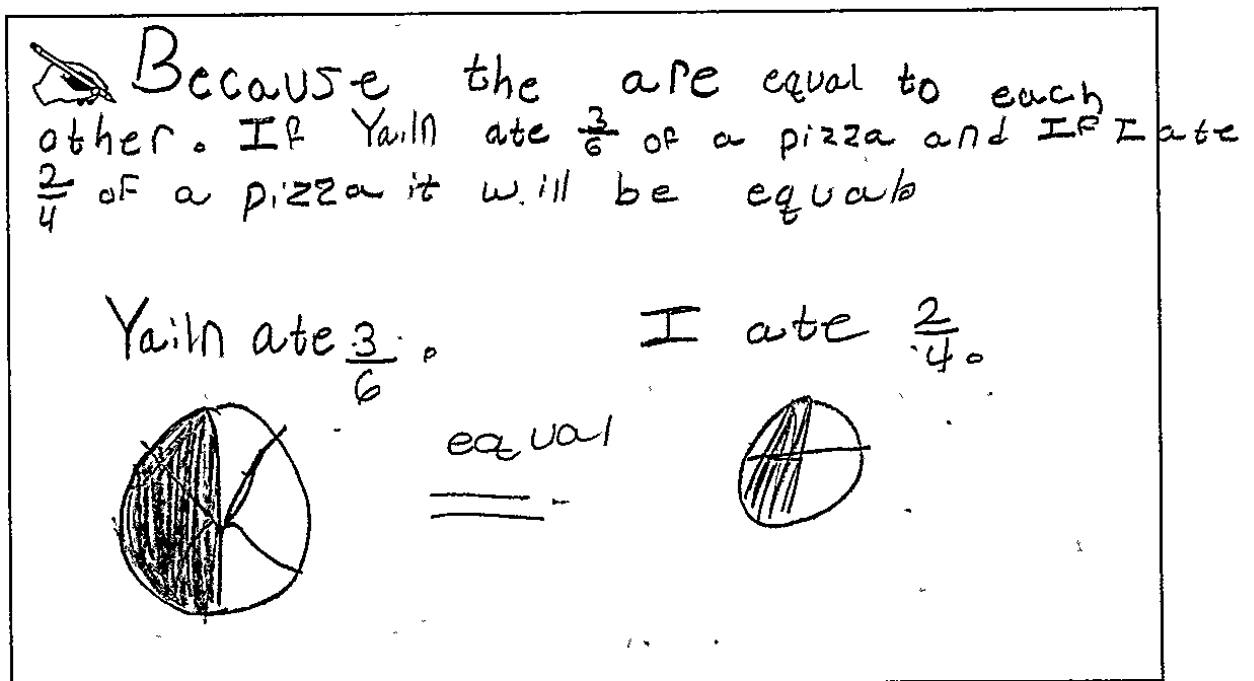 Because the are equal to each
other. If Yailn ate 3/6 of a pizza and If I ate
2/4 of a pizza it will be equal.
Yailn ate 3/6. I ate 2/4.
equal
=